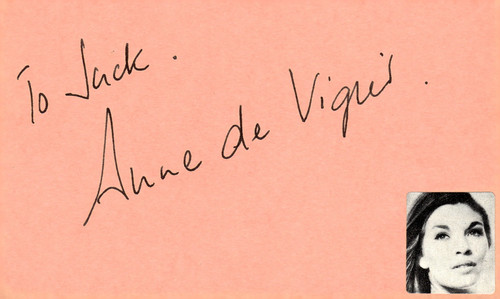 To Jack.
Anne de Vigier.